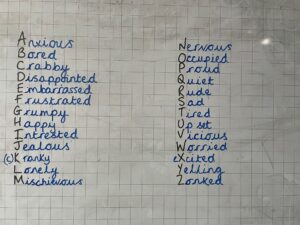 Anxious
Bored
Crabby
Disappointed
Embarrassed
Frustrated
Grumpy
Happy
Intrested
Jealous
(c)Kranky
Lonely
Mischievous
Nervous
Occupied
Proud
Quiet
Rude
Sad
Tired
Upset
Vicious
Worried
eXcited
Yelling
Zonked